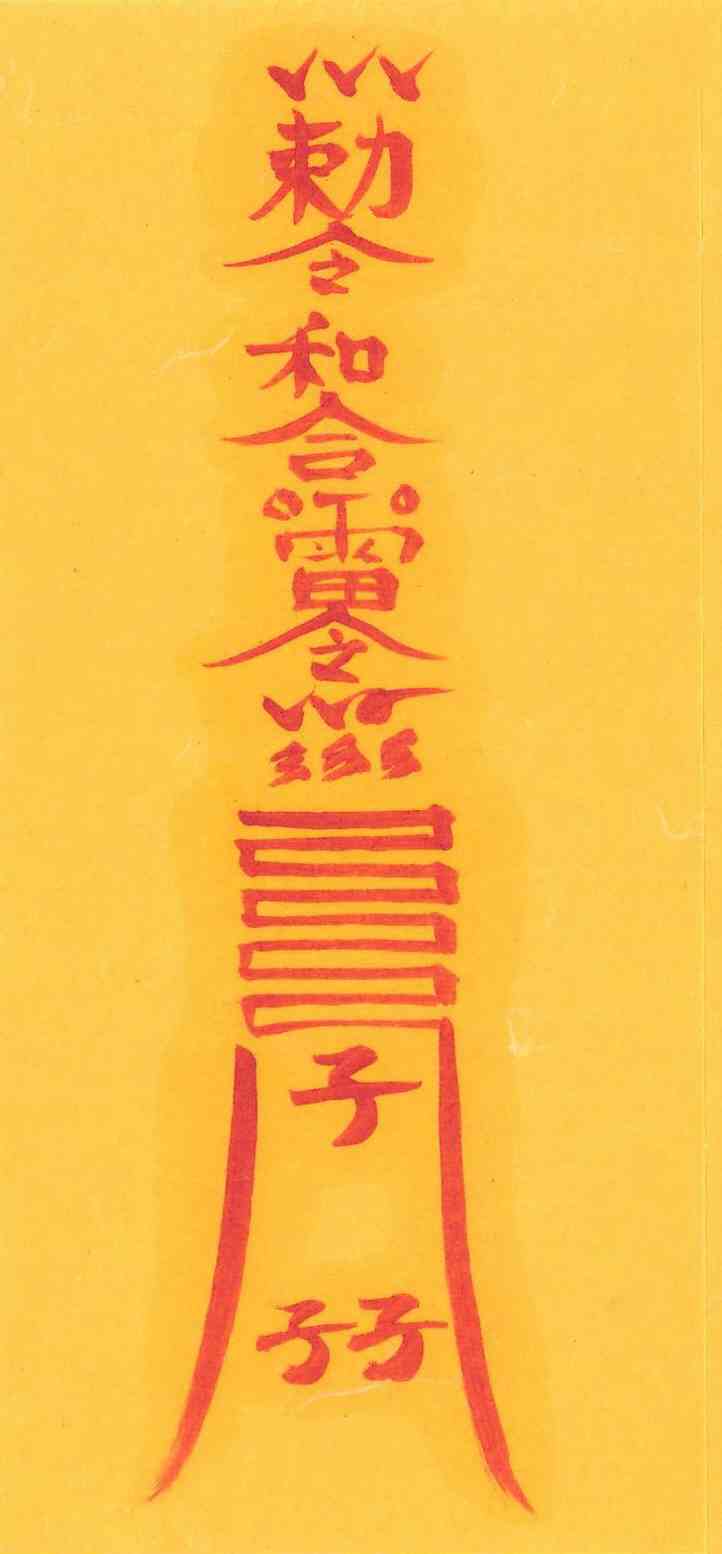 勅
令
和
合
雷
令
子
子子